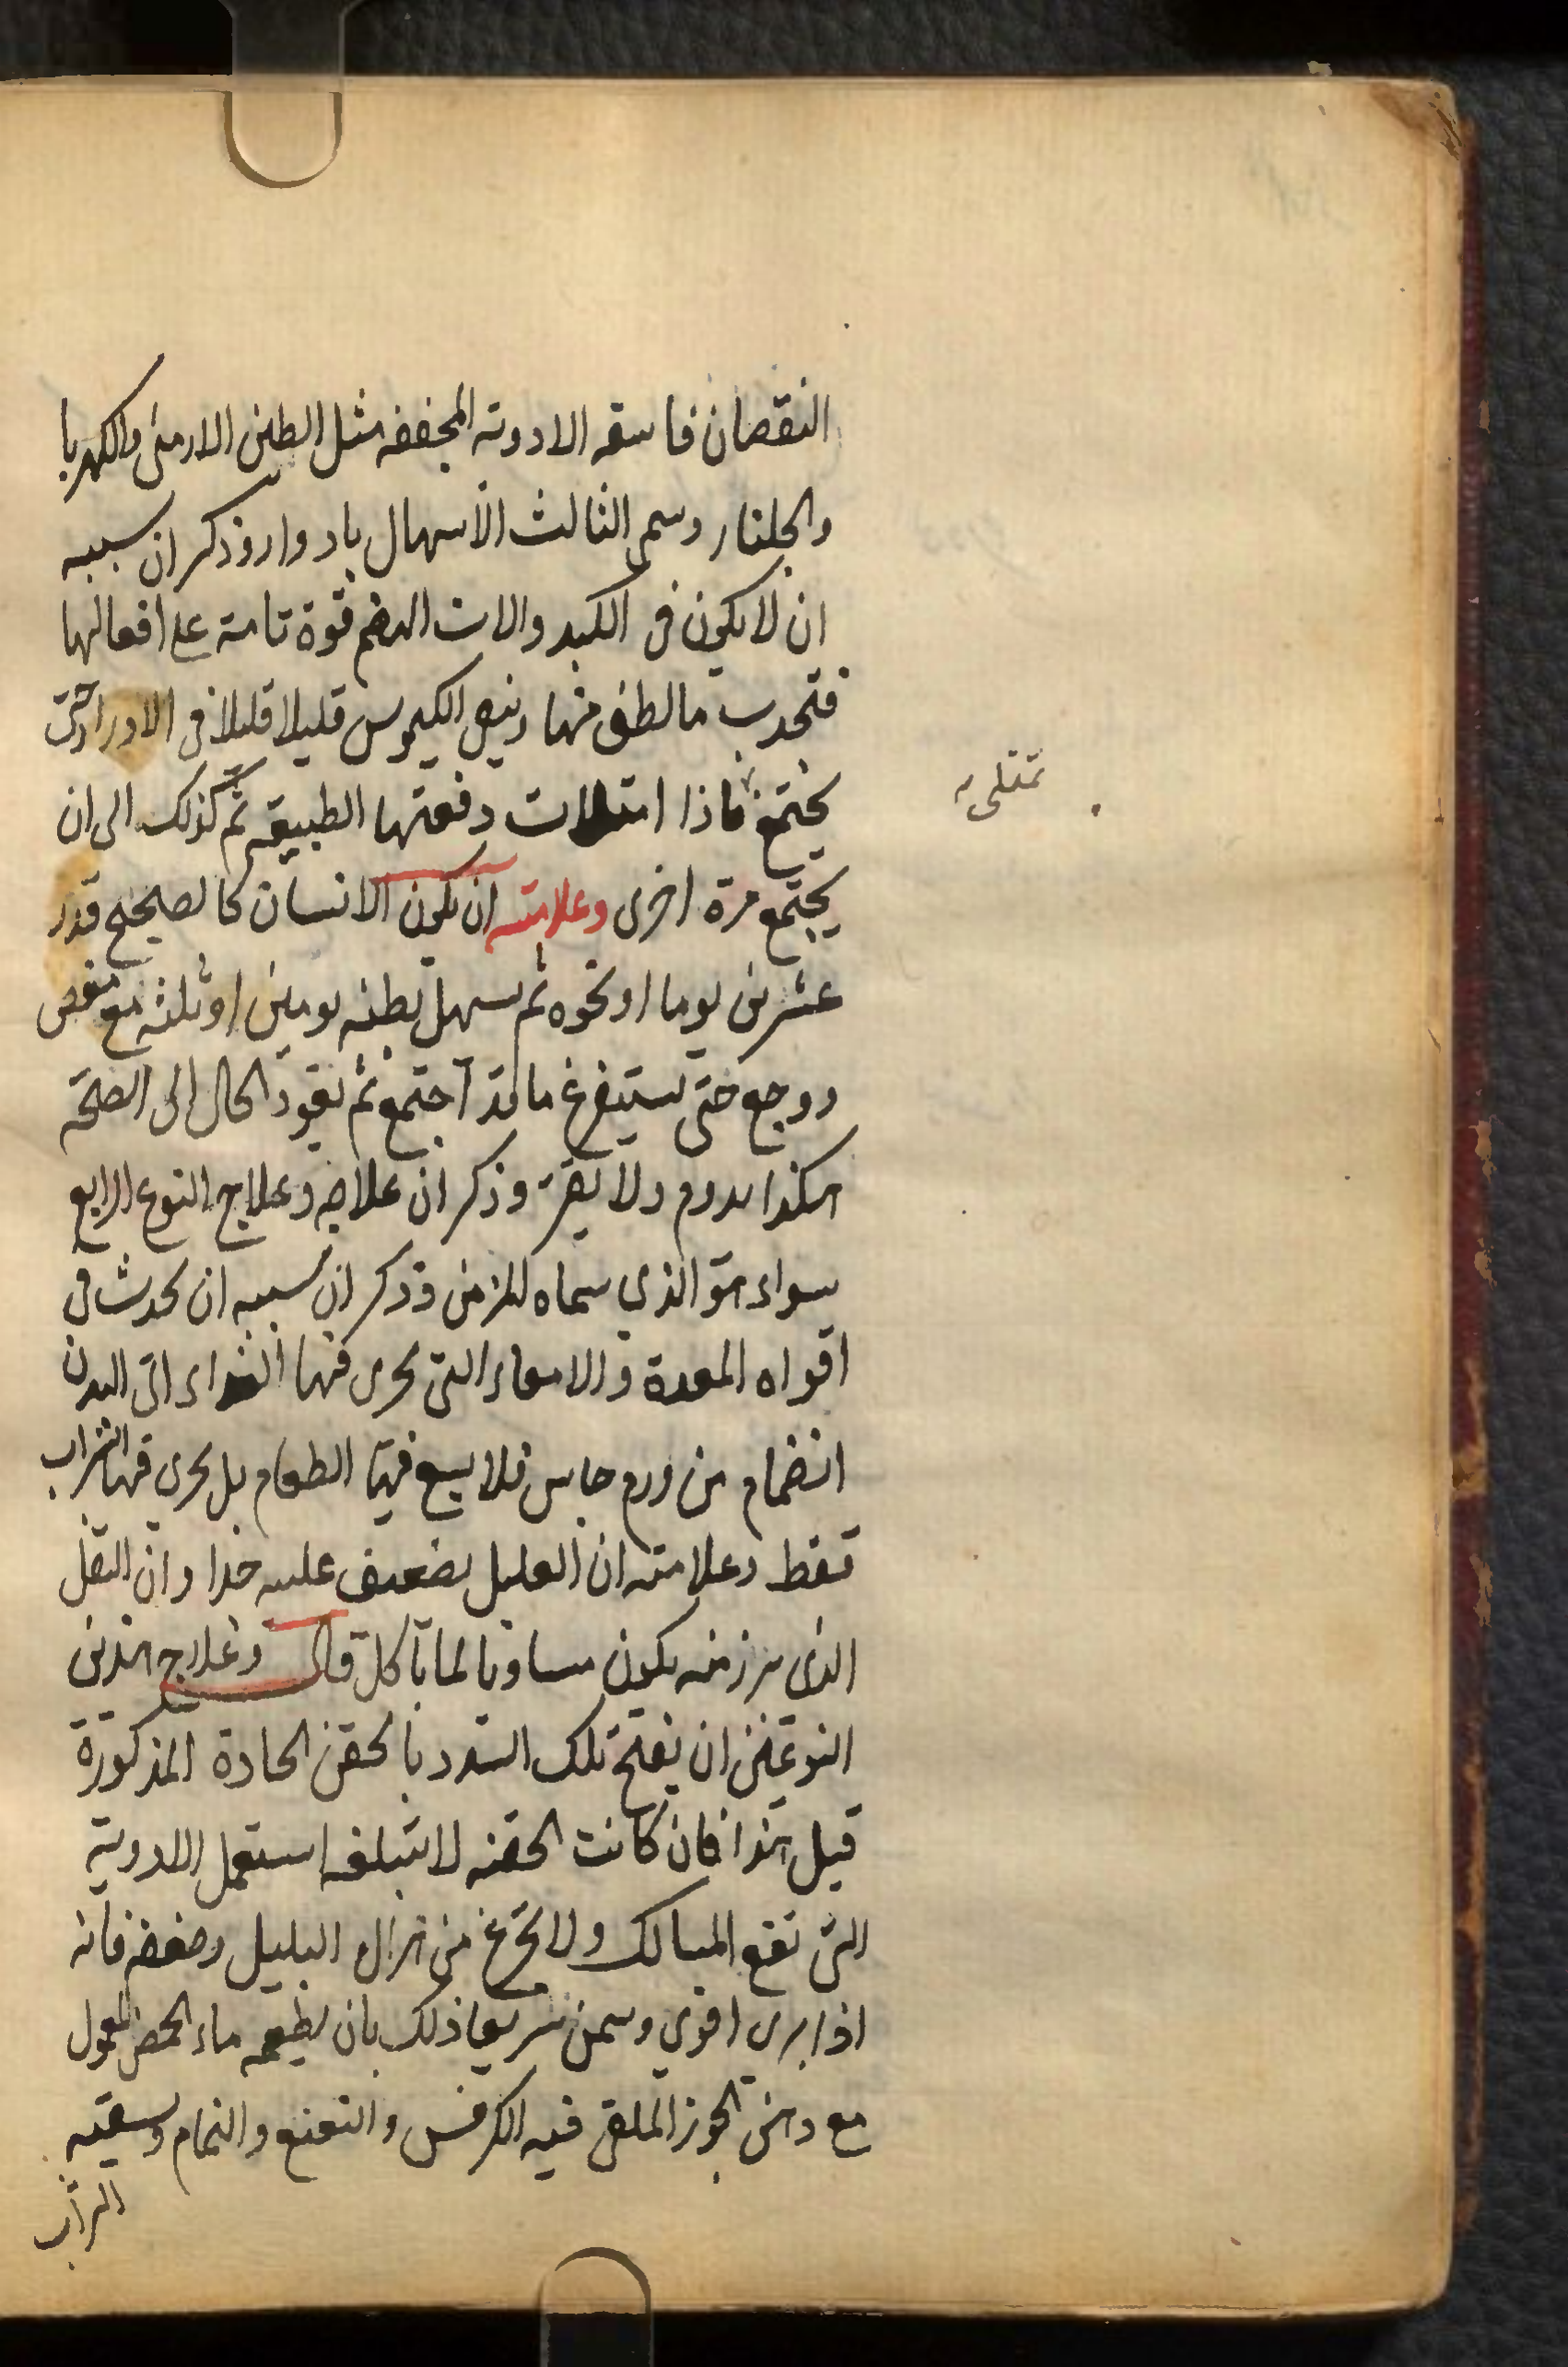 النقصان فاسقه الادوية المجففه مثل الطين الارمنى والكهربا
والجلنار وسمى الثالث الاسهال بادوار وذكر ان سببه
ان لا يكون فى الكبد والات الهضم قوة تامة على افعالها
فتجذب ما لطف منها ويبقى الكيموس قليلا قليلا فى الاوراد حتى
يجتمع فاذا امتلات دفعتها الطبيعة ثم كذلك الى ان
تمتلىء
يجتمع مرة اخرى وعلامته ان يكون الانسان كالصحيح قدر
عشرين يوما او نحوه ثم يسهل بطنه يومين او ثلثه مع مغص
ووجع حتى يستفرغ ما قد اجتمع ثم يعود الحال الى الصحة
هكذا يدوم ولا يفتر وذكر ان علاجه وعلاج النوع الرابع
سواء هو الذي سماه المزمن وذكر ان سببه ان يحدث فى
افواه المعدة والامعاء التى يجرى فيها الغذاء الى البدن
انضمام من ورم جاس فلا يسع فيها الطعام بل يجري فيها الشراب
فقط وعلامته ان العليل يضعف عليه جدا وان الثفل
الذى يبرز منه يكون مساويا لما ياكل قال وعلاج هذين
النوعين ان يفتح تلك السدد بالحقن الحادة المذكورة
قبل هذا فان كانت الحقنه لا تبلغه استعمل الادوية
التى تفتح المسالك ولا تجزع من هزال العليل وضعفه فانه
اذا برى اقوي وسمن سريعا ذلك بان يطعمه ماء الحمص المعمول
مع دهن الجوز الملقى فيه الكرفس والنعنع والنمام ويسقيه
الشراب